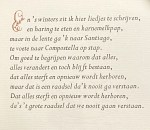 En 's winters zit ik hier liedjes te schrijven,
en haring te eten en harnomelkpap,
maar in de lente ga 'k naar Santiago,
te voete naar Compostella op stap.
Om goed te begrijpen waarom dat alles,
alles verandert en toch blijft bestaan,
dat alles sterft en opnieuw wordt herboren,
maar dat is een raadsel da'k nooit ga verstaan.
dat alles sterft en opnieuw wordt herboren,
da's 't grote raadsel dat we nooit gaan verstaan.